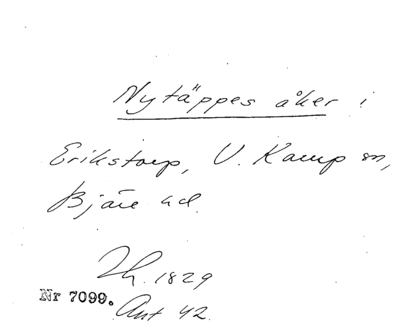 Nytäppes åker i
Erikstorp, V. Karup sn,
Bjäre hd.
Th. 1829
Nr 7099.
Ant 42.